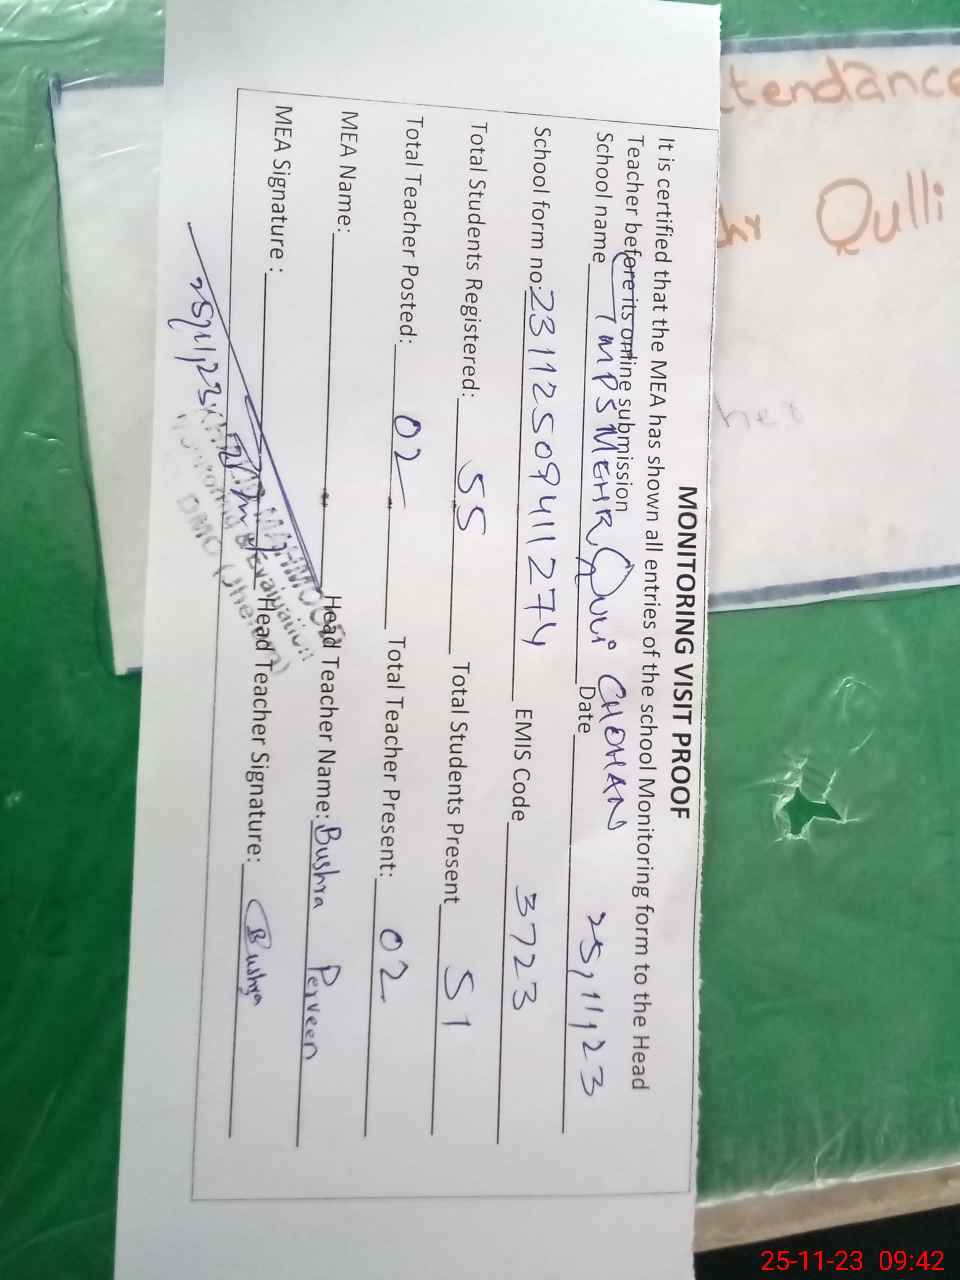 MONITORING VISIT PROOF
It is certified that the MEA has shown all entries of the school Monitoring form to the Head
Teacher before its online submission
School name GMPS MEHR QULLI CHOHAN Date 25/11/23
School form no: 23112509411274 EMIS Code 3723
Total Students Registered: 55 Total Students Present 51
Total Teacher Posted: 02 Total Teacher Present: 02
MEA Name: Head Teacher Name: Bushra Perveen
MEA Signature : Head Teacher Signature: Bushra
25/11/23
MAHMOOD
Monitoring & Evaluation
DMO
tendance
hr Qulli
her
25-11-23 09:42